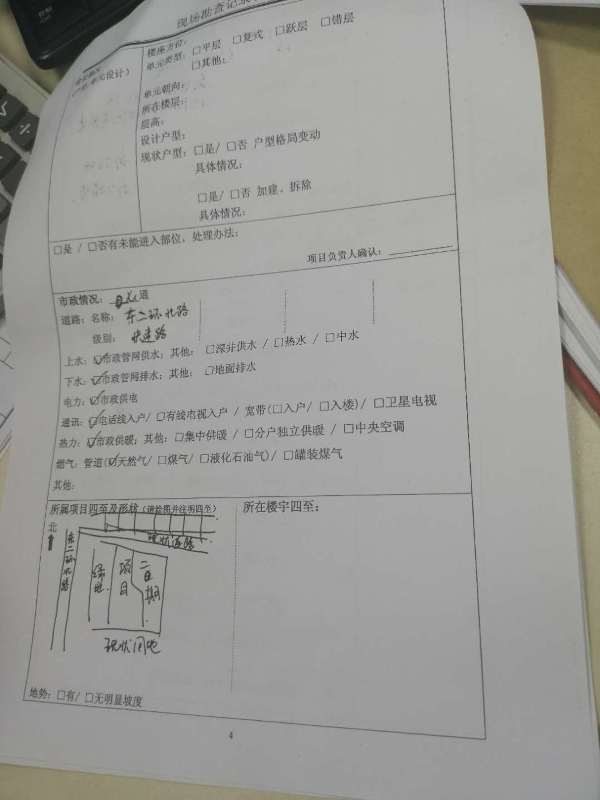 现场勘查记录
单元设计）
楼座方位：
单元类型：□平层 □复式 □跃层 □错层
□其他：
单元朝向：
所在楼层：
层高：
设计户型：
现状户型：□是/ □否 户型格局变动
具体情况：
□是/ □否 加建、拆除
具体情况：
□是 / □否有未能进入部位，处理办法：
项目负责人确认：
市政情况： 道
道路：名称： 东二环北路
级别： 快速路
上水：☑市政管网供水；其他： □深井供水 / □热水 / □中水
下水：☑市政管网排水；其他： □地面排水
电力：☑市政供电
通讯：☑电话线入户/ □有线电视入户 / 宽带(□入户/ □入楼)/ □卫星电视
热力：☑市政供暖；其他：□集中供暖 / □分户独立供暖 / □中央空调
燃气：管道(☑天然气/ □煤气/ □液化石油气)/ □罐装煤气
其他：
所属项目四至及形状（请绘图并注明四至）
所在楼宇四至：
北
现状道路
东二环北路
绿地
项目
二期
现状用地
地势：□有/ □无明显坡度
4